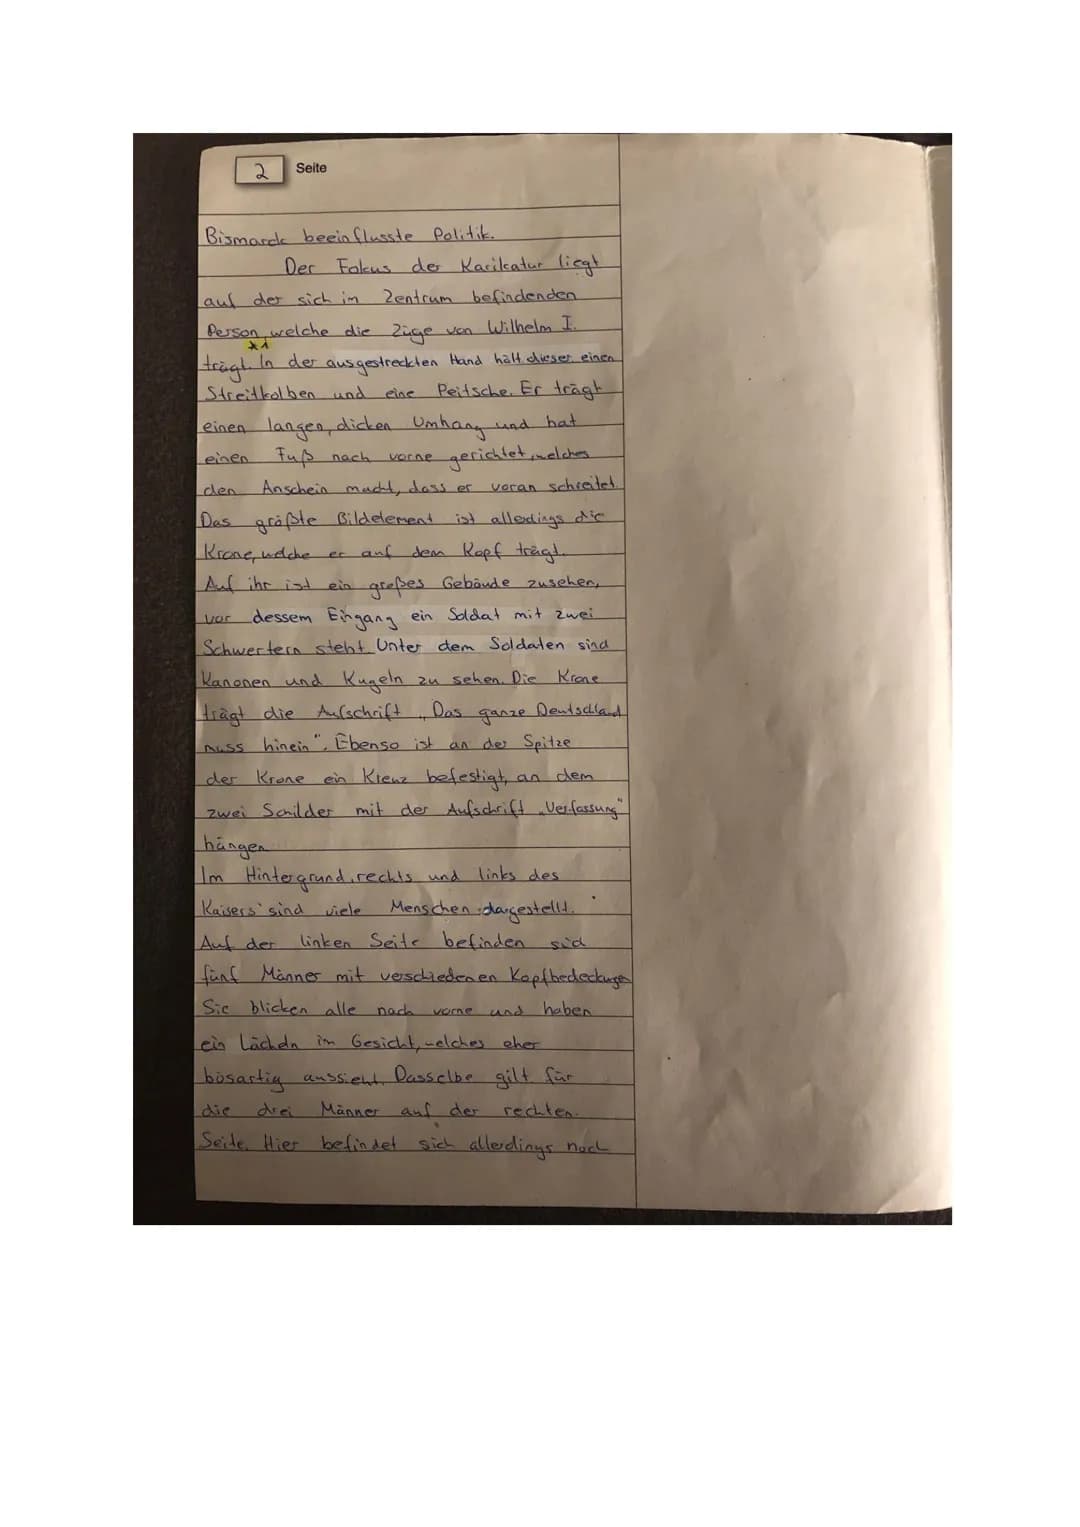 2 Seite
Bismarck beeinflusste Politik.
Der Fokus der Karikatur liegt
auf der sich im Zentrum befindenden
Person, welche die Züge von Wilhelm I.
*1
trägt. In der ausgestreckten Hand hält dieser einen
Streitkolben und eine Peitsche. Er trägt
einen langen, dicken Umhang und hat
einen Fuß nach vorne gerichtet, welches
den Anschein macht, dass er voran schreitet.
Das größte Bildelement ist allerdings die
Krone, welche er auf dem Kopf trägt.
Auf ihr ist ein großes Gebäude zusehen,
vor dessem Eingang ein Soldat mit zwei
Schwertern steht. Unter dem Soldaten sind
Kanonen und Kugeln zu sehen. Die Krone
trägt die Aufschrift „Das ganze Deutschland
muss hinein". Ebenso ist an der Spitze
der Krone ein Kreuz befestigt, an dem
zwei Schilder mit der Aufschrift „Verfassung"
hängen
Im Hintergrund, rechts und links des
Kaisers sind viele Menschen dargestellt.
Auf der linken Seite befinden sich
fünf Männer mit verschiedenen Kopfbedeckungen
Sie blicken alle nach vorne und haben
ein Lächeln im Gesicht, welches eher
bösartig aussieht. Dasselbe gilt für
die drei Männer auf der rechten
Seite. Hier befindet sich allerdings noch